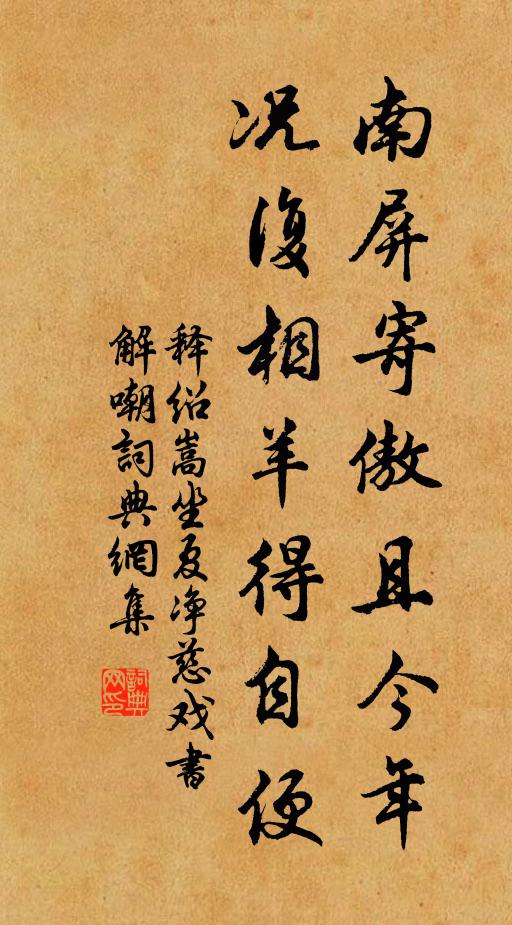 南屏寄傲且今年
况復相羊得自便
释绍嵩坐夏净慈戏書
解嘲詞典網集
詞典網印